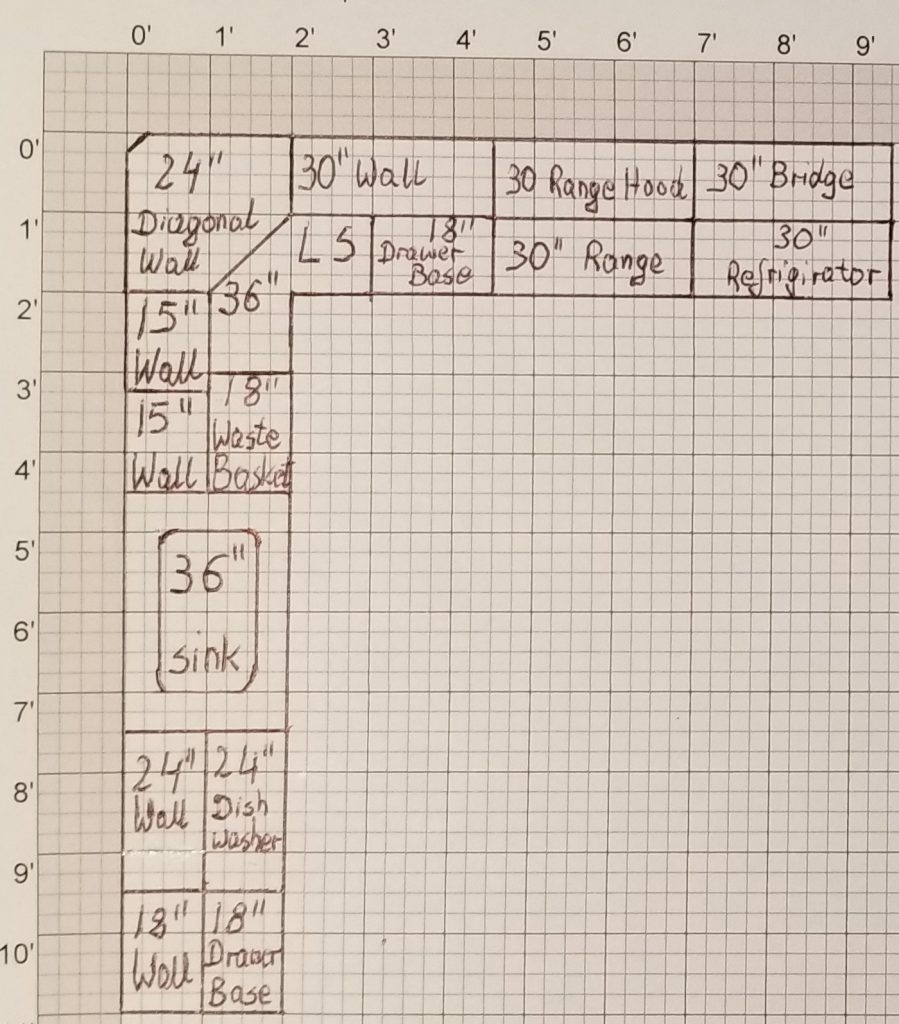 0' 1' 2' 3' 4' 5' 6' 7' 8' 9'
0'
24"
Diagonal
Wall
30" Wall
30 Range Hood
30" Bridge
1'
L S
36"
18"
Drawer
Base
30" Range
30"
Refrigirator
2'
15"
Wall
3'
15"
Wall
18"
Waste
Basket
4'
5'
36"
sink
6'
7'
24"
Wall
24"
Dish
washer
8'
9'
18"
Wall
18"
Drawer
Base
10'